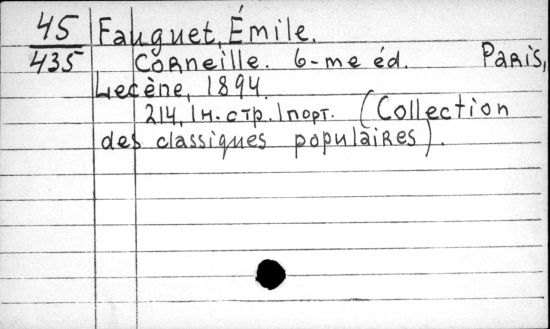 45 Fauguet, Émile.
435 Corneille. 6-me éd. Paris,
Lecène, 1894.
214, 1 н. стр. 1 порт. (Collection
des classiques populaires).